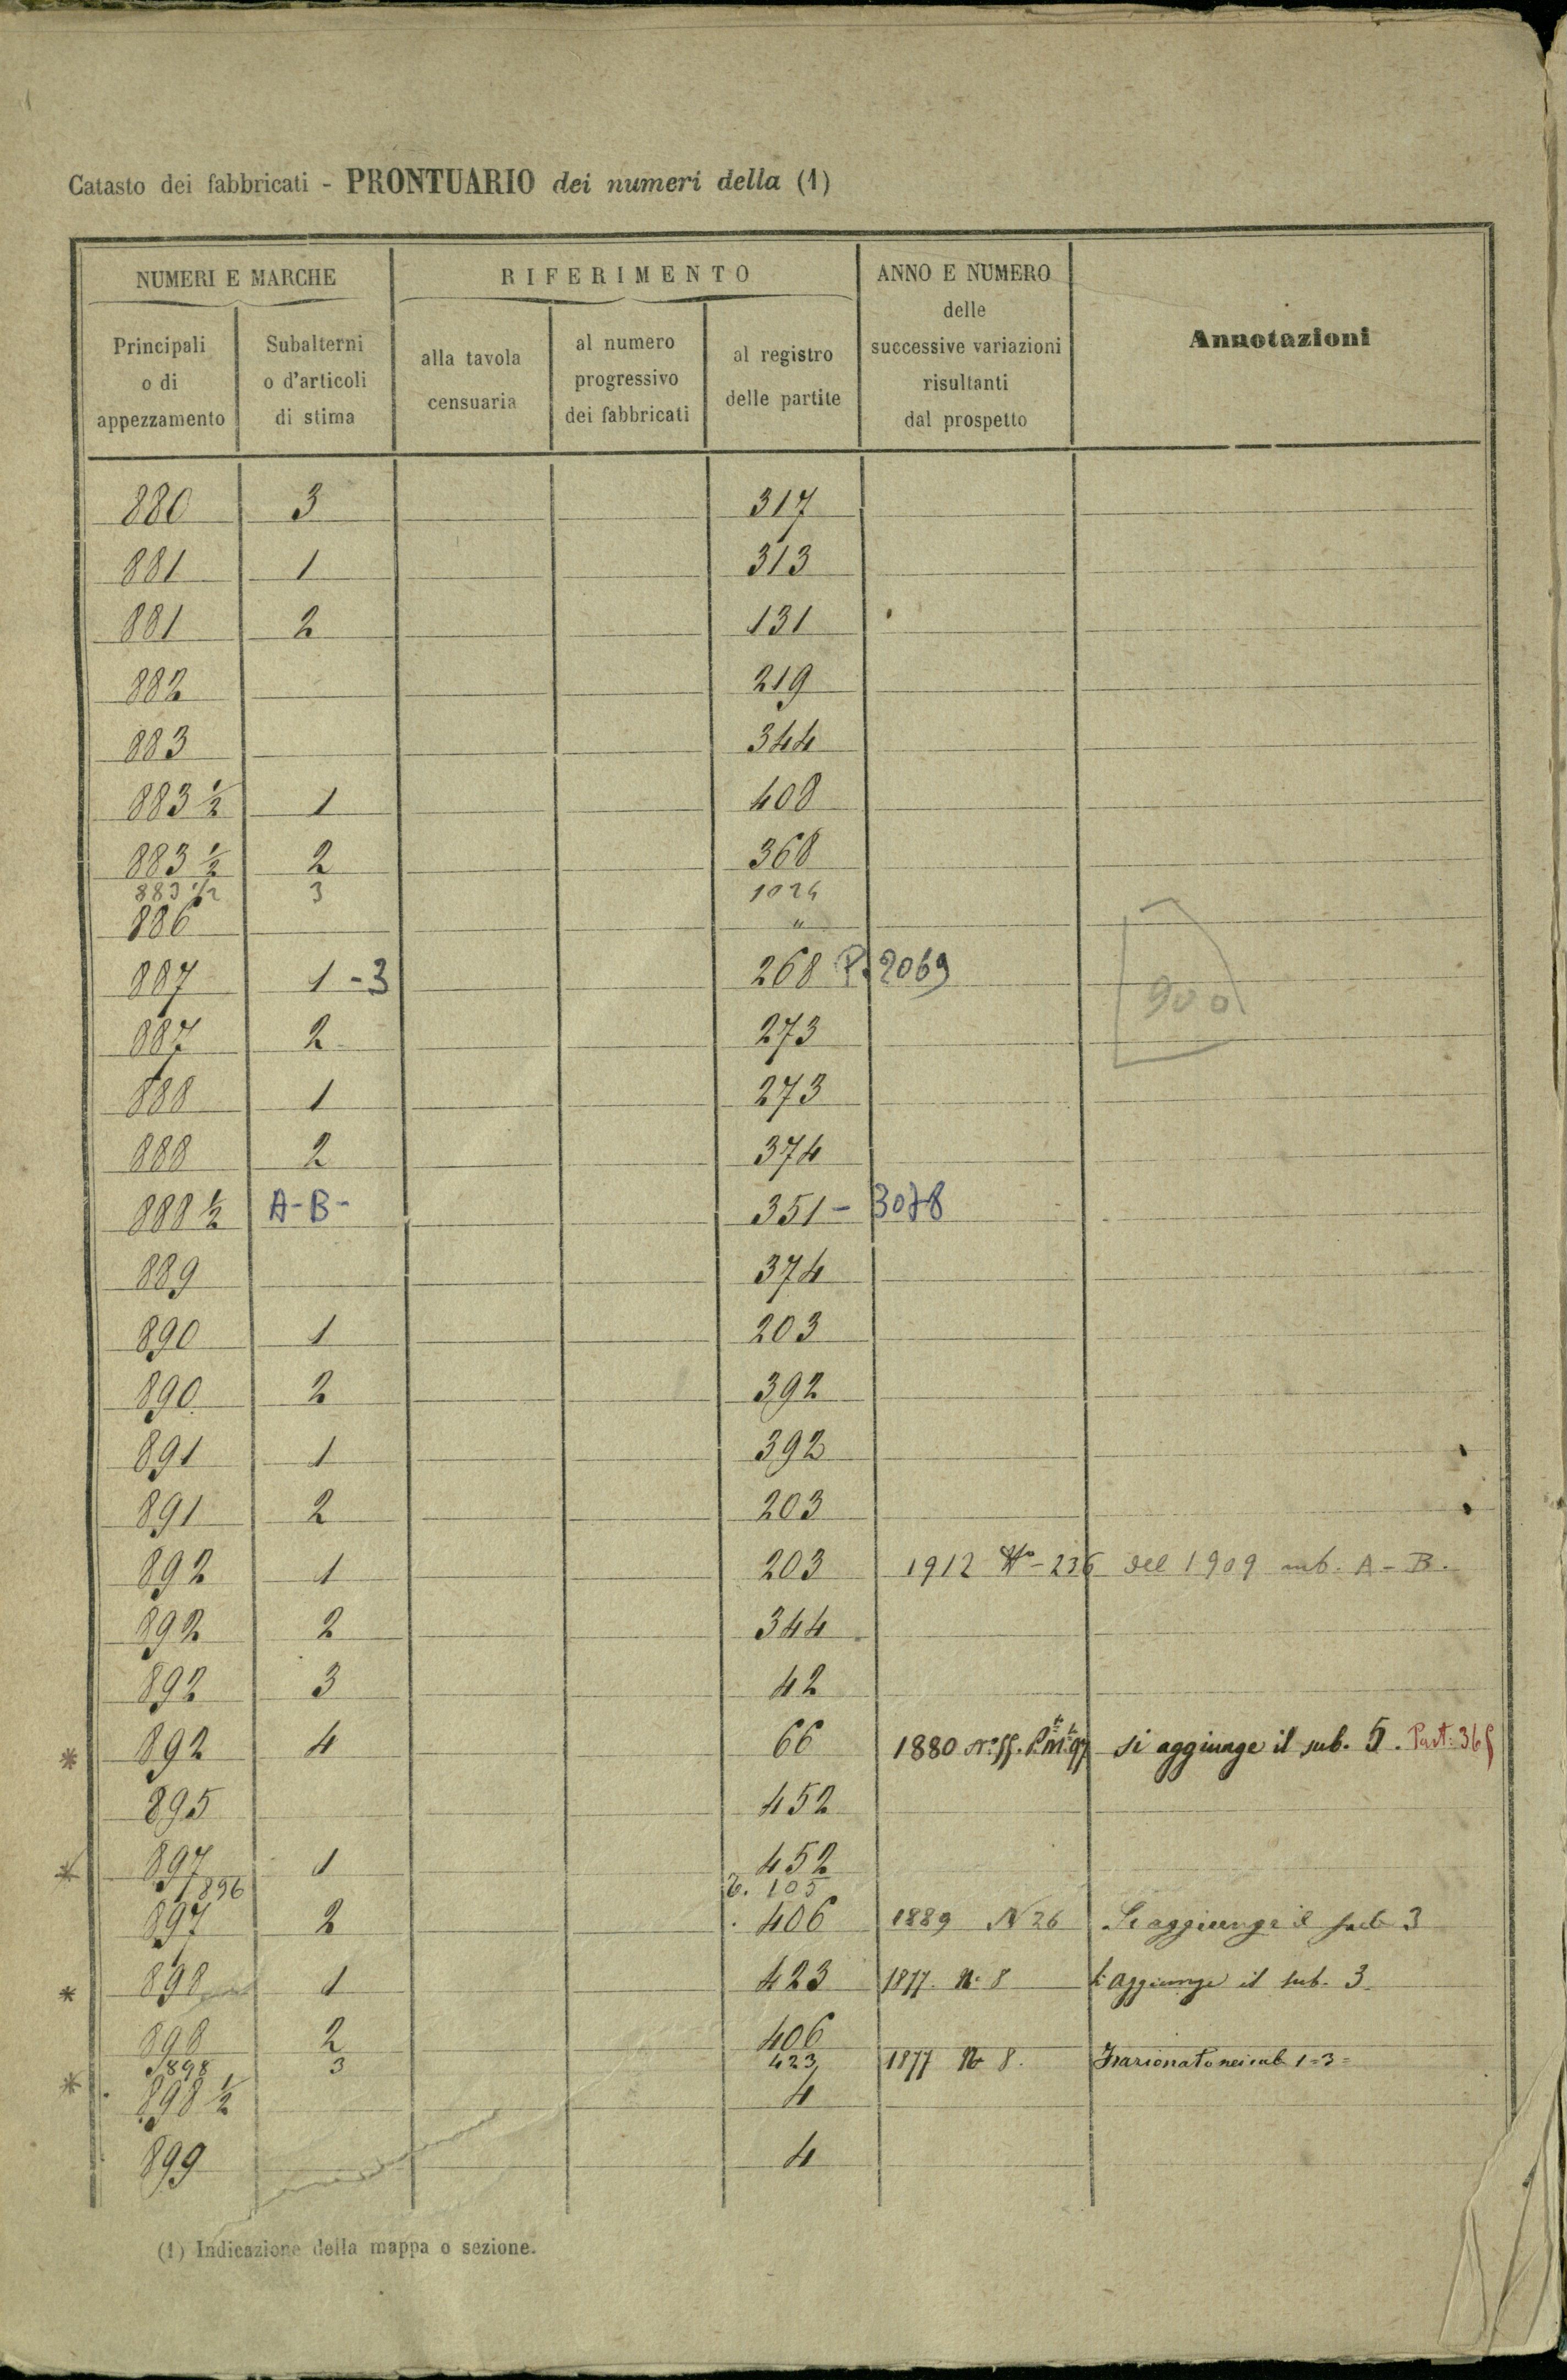 Catasto dei fabbricati - PRONTUARIO dei numeri della (1)
NUMERI E MARCHE
RIFERIMENTO
ANNO E NUMERO
delle
successive variazioni
risultanti
dal prospetto
Annotazioni
Principali
o di
appezzamento
Subalterni
o d'articoli
di stima
alla tavola
censuaria
al numero
progressivo
dei fabbricati
al registro
delle partite
880 3 317
881 1 313
881 2 131
882 219
883 344
883 ½ 1 408
883 ½ 2 368
883 ½ 3 1024
886 "
887 1 - 3 268 P. 2069
900
887 2 273
888 1 273
888 2 374
888 ½ A-B- 351 - 3078
889 374
890 1 203
890 2 392
891 1 392
891 2 203
892 1 203 1912 No - 236 del 1909 sub. A - B.
892 2 344
892 3 42
* 892 4 66 1880 si aggiunge il sub. 5. Part: 365
895 452
* 897 1 452
1896 105
897 2 406 1889 N 26 Si aggiunge il sub 3
* 898 1 423 1877. No. 8 Si aggiunge il sub. 3
898 2 406
898 3 423 1877 No 8. Frazionato nei sub 1=3=
* 898 ½ 4
899 4
(1) Indicazione della mappa o sezione.